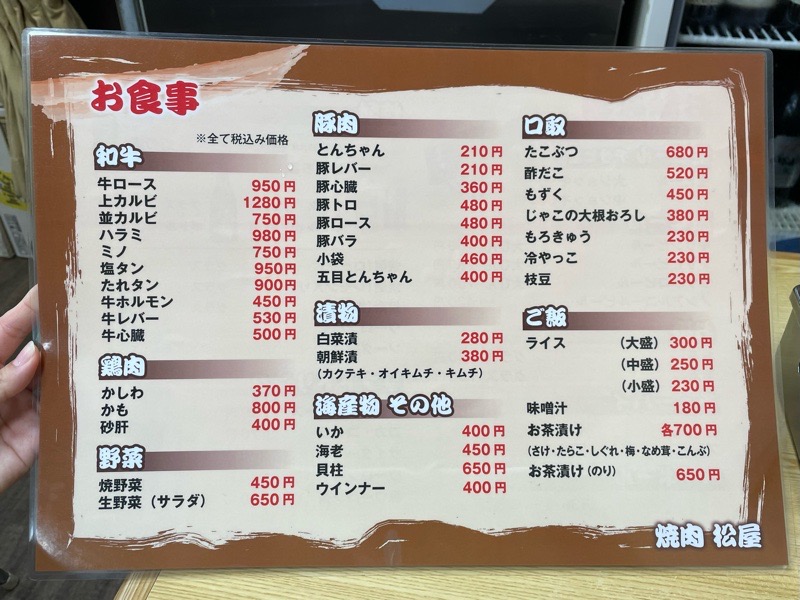 お食事
※全て税込み価格
和牛
牛ロース 950円
上カルビ 1280円
並カルビ 750円
ハラミ 980円
ミノ 750円
塩タン 950円
たれタン 900円
牛ホルモン 450円
牛レバー 530円
牛心臓 500円
鶏肉
かしわ 370円
かも 800円
砂肝 400円
野菜
焼野菜 450円
生野菜（サラダ） 650円
豚肉
とんちゃん 210円
豚レバー 210円
豚心臓 360円
豚トロ 480円
豚ロース 480円
豚バラ 400円
小袋 460円
五目とんちゃん 400円
漬物
白菜漬 280円
朝鮮漬 380円
（カクテキ・オイキムチ・キムチ）
海産物 その他
いか 400円
海老 450円
貝柱 650円
ウインナー 400円
口取
たこぶつ 680円
酢だこ 520円
もずく 450円
じゃこの大根おろし 380円
もろきゅう 230円
冷やっこ 230円
枝豆 230円
ご飯
ライス （大盛） 300円
（中盛） 250円
（小盛） 230円
味噌汁 180円
お茶漬け 各700円
（さけ・たらこ・しぐれ・梅・なめ茸・こんぶ）
お茶漬け（のり） 650円
焼肉 松屋